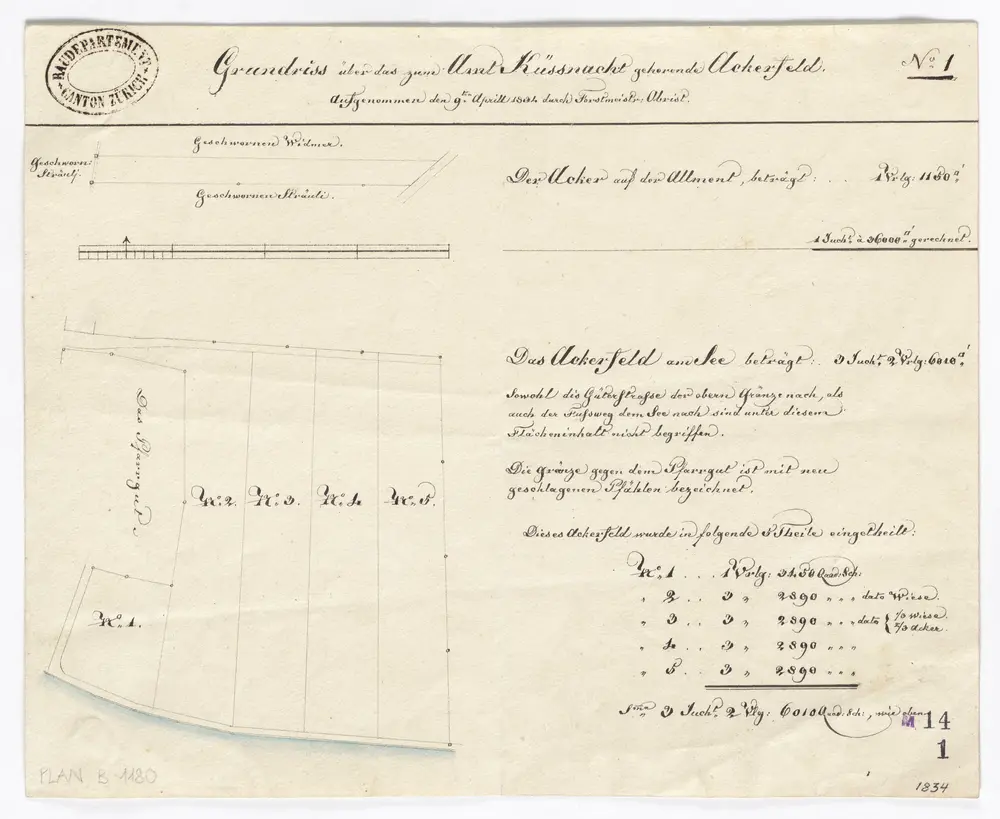 BAUDEPARTEMENT
CANTON ZÜRICH
Grundriss über das zum Amt Küssnacht gehörende Ackerfeld.
No 1
Aufgenommen den 9ten Aprill 1834 durch Forstmeistr: Obrist.
Geschwornen Widmer.
Geschworn:
Sträuli.
Geschwornen Sträuli.
Der Acker auf der Allment, beträgt: . . . 1 Vrlg: 1180□'
1 Jucht à 36000□' gerechnet.
Das Ackerfeld am See beträgt: . 3 Jucht 2 Vrlg: 6010□'
Sowohl die Güterstrasse der obern Gränze nach, als
auch der Fussweg dem See nach sind unter diesem
Flächeninhalt nicht begriffen.
Die Gränze gegen dem Pfarrgut ist mit neu
geschlagenen Pfählen bezeichnet.
Dieses Ackerfeld wurde in folgende 5 Theile eingetheilt:
No. 1 . . . 1 Vrlg: 3450 Quad: Sch:
" 2 . . 3 " 2890 " " " dato Wiese.
" 3 . . 3 " 2890 " " " dato { 1/3 Wiese.
2/3 Acker.
" 4 . . 3 " 2890 " " "
" 5 . . 3 " 2890 " " "
Sma 3 Jucht 2 Vlg: 6010 Quad: Sch:, wie oben
Das Pfarrgut
No. 2.
No. 3.
No. 4
No. 5.
No. 1.
M 14
1
PLAN B 1180
1834